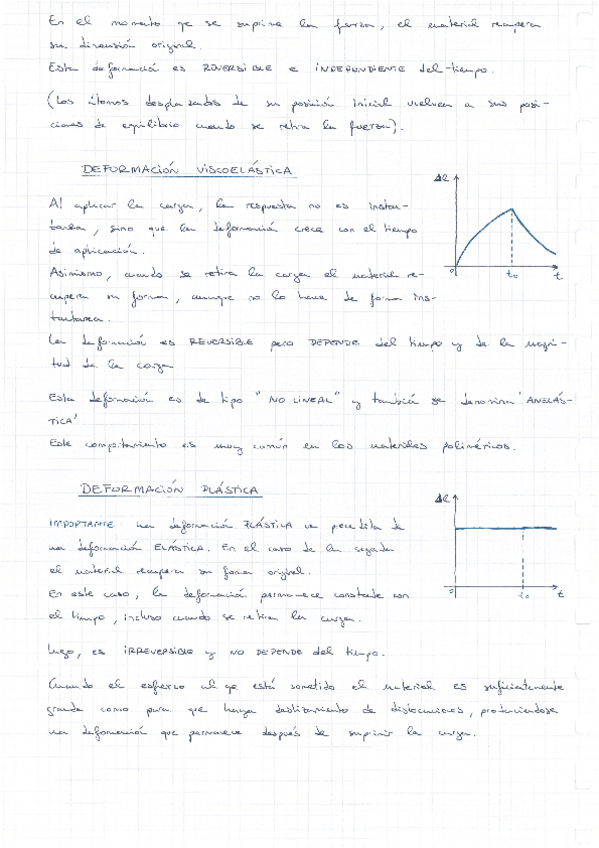 En el momento qe se suprime la fuerza, el material recupera
su dimensión original.
Esta deformación es REVERSIBLE e INDEPENDIENTE del tiempo.
(Los átomos desplazados de su posición inicial vuelven a sus posi-
ciones de equilibrio cuando se retira la fuerza).
DEFORMACIÓN VISCOELÁSTICA
Δl
Al aplicar la carga, la respuesta no es instan-
tánea, sino que la deformación crece con el tiempo
de aplicación.
0 to t
Asimismo, cuando se retira la carga el material re-
cupera su forma, aunque no lo hace de forma ins-
tantánea.
La deformación es REVERSIBLE pero DEPENDE del tiempo y de la magni-
tud de la carga
Esta deformación es de tipo "NO LINEAL" y también se denomina 'ANELÁS-
TICA'
Este comportamiento es muy común en los materiales poliméricos.
DEFORMACIÓN PLÁSTICA
Δl
IMPORTANTE una deformación PLÁSTICA va precedida de
una deformación ELÁSTICA. En el caso de la segunda
el material recupera su forma original.
En este caso, la deformación permanece constante con
0 to t
el tiempo, incluso cuando se retira la carga.
Luego, es IRREVERSIBLE y NO DEPENDE del tiempo.
Cuando el esfuerzo al qe está sometido el material es suficientemente
grande como para que haya deslizamiento de dislocaciones, produciéndose
una deformación que permanece después de suprimir la carga.